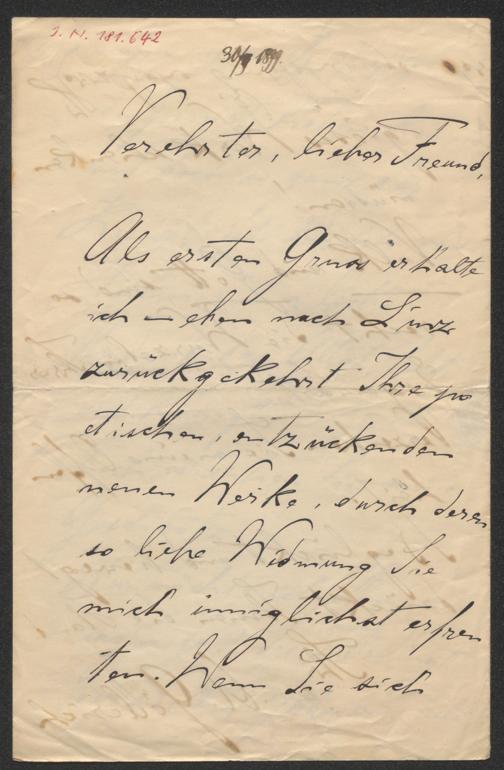 J. N. 181.642
30/9 1899.
Verehrter, lieber Freund,
Als ersten Gruss erhalte
ich – eben nach Linz
zurückgekehrt Ihre po
etischen, entzückenden
neuen Werke, durch deren
so liebe Widmung Sie
mich inniglichst erfreu
ten. Wenn Sie sich